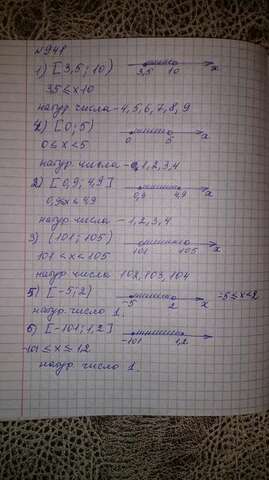 №948
1) [3,5; 10) 3,5 10 x
3,5 ≤ x 10
натур числа - 4, 5, 6, 7, 8, 9
4) [0; 5) 0 5 x
0 ≤ x < 5
натур числа - 0, 1, 2, 3, 4
2) [0,9; 4,9] 0,9 4,9 x
0,9≤x ≤ 4,9
натур числа - 1, 2, 3, 4
3) (101; 105) 101 105 x
101 < x < 105
натур числа 102, 103, 104
5) [-5; 2) -5 2 x -5 ≤ x < 2
натур. число 1.
6) [-101; 1,2] -101 1,2 x
-101 ≤ x ≤ 1,2
натур число 1.